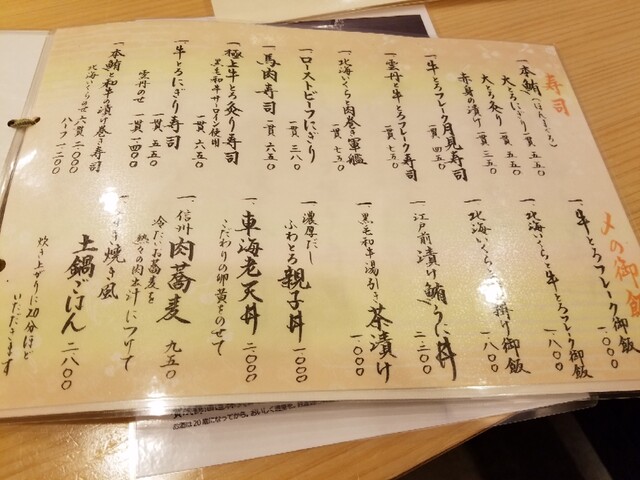 寿司
一、本鮪（ほんまぐろ）
大とろにぎり 一貫 五五〇
大とろ炙り 一貫 五五〇
赤身の漬け 一貫 三五〇
一、牛とろフレーク月見寿司
一貫 四五〇
一、雲丹と牛とろフレーク寿司
一貫 七五〇
一、北海いくらと肉巻き軍艦
一貫 七五〇
一、ローストビーフにぎり
一貫 三八〇
一、馬肉寿司
一貫 六五〇
一、極上牛とろ炙り寿司
黒毛和牛サーロイン使用
一貫 六五〇
一、牛とろにぎり寿司
一貫 五五〇
雲丹のせ 一貫 一四〇〇
一、本鮪と和牛の漬け巻き寿司
北海いくらのせ 六貫 二〇〇〇
ハーフ 一二〇〇
〆の御飯
一、牛とろフレーク御飯
一〇〇〇
一、北海いくらと牛とろフレーク御飯
一八〇〇
一、北海いくらと
掛け御飯
一八〇〇
一、江戸前漬け鮪うに丼
二三〇〇
一、黒毛和牛湯引き茶漬け
一〇〇〇
一、濃厚だし
ふわとろ親子丼
一〇〇〇
一、車海老天丼
こだわりの卵黄をのせて
二〇〇〇
一、信州肉蕎麦 九五〇
冷たいお蕎麦を
熱々の肉出汁につけて
き焼き風
土鍋ごはん 二八〇〇
炊き上がりに20分ほど
いただきます
お酒は20歳になってから。おいしく適量を。